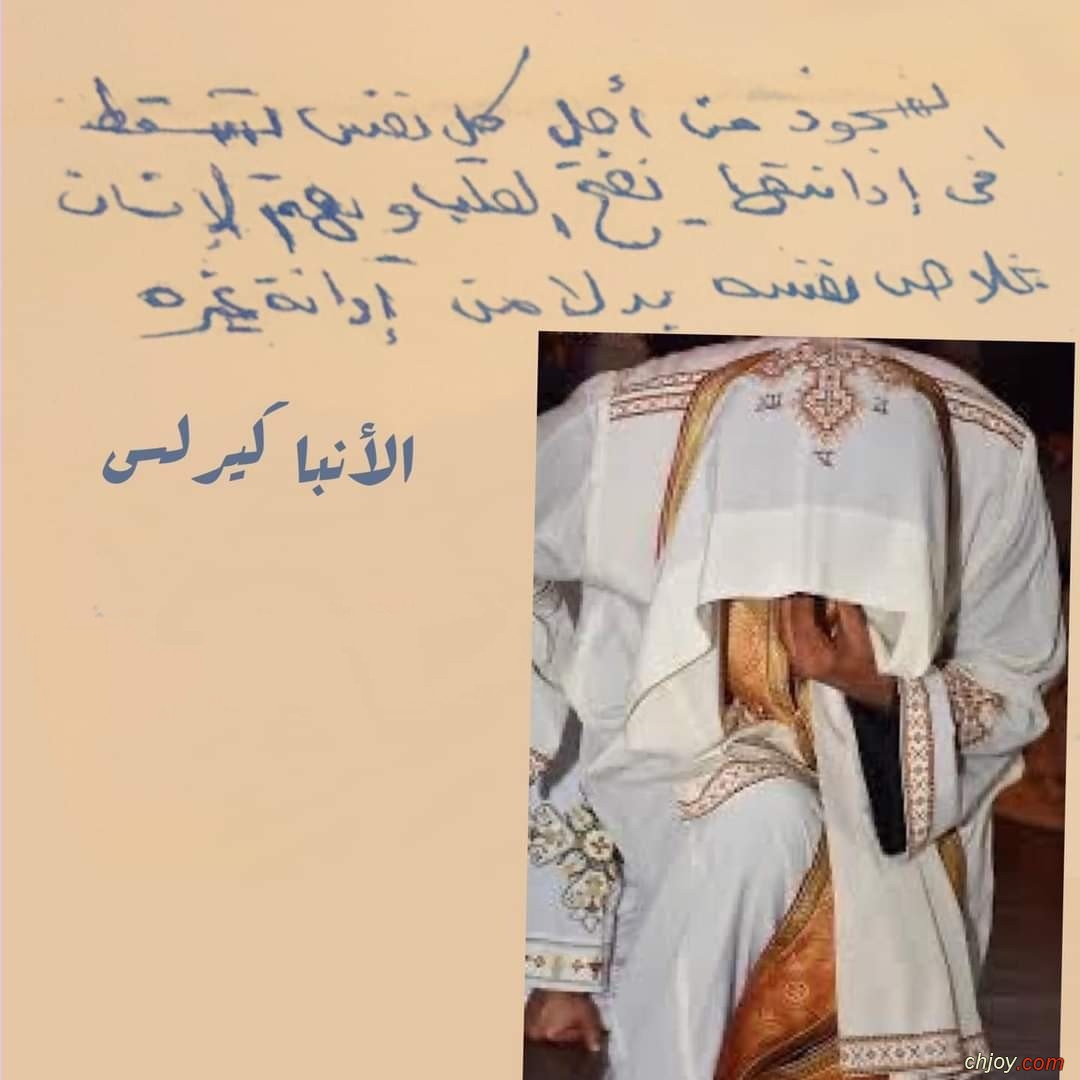 السجود من أجل كل نفس نسقط
فى إدانتها ينقى القلب ويهتم الإنسان
بخلاص نفسه بدلا من إدانة غيره
الأنبا كيرلس
chjoy.com